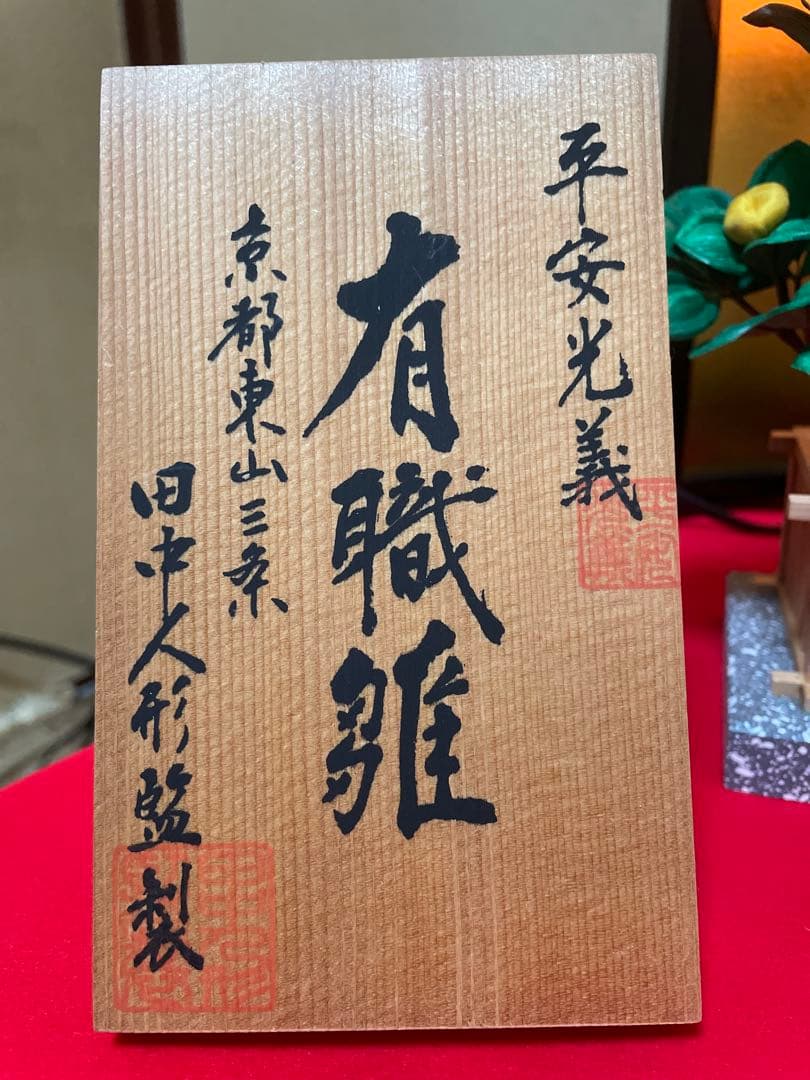 平安光義
有職雛
京都東山三条
田中人形監製